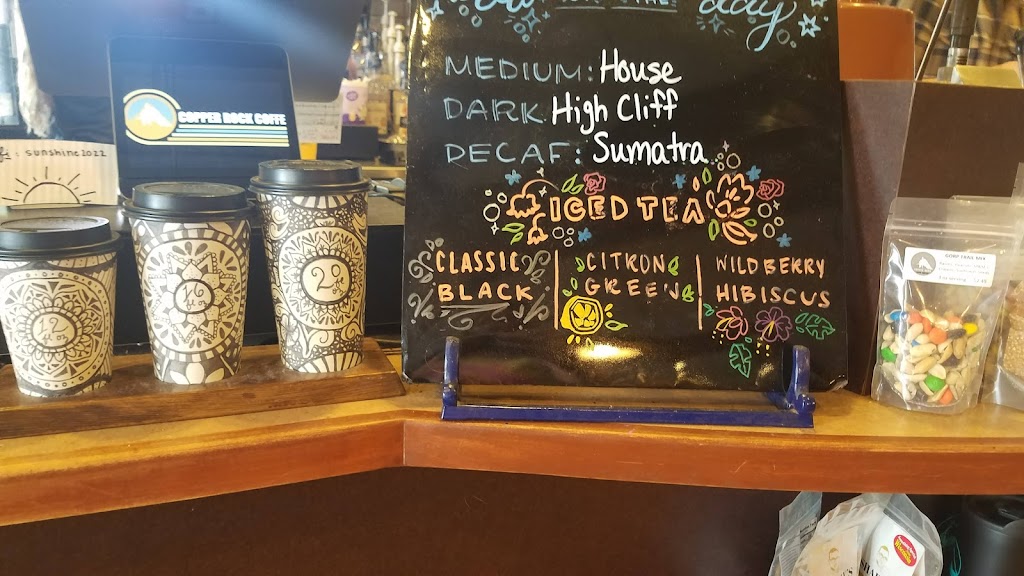 day
MEDIUM: House
DARK High Cliff
DECAF: Sumatra
ICED TEA
CLASSIC
BLACK
CITRON
GREEN
WILDBERRY
HIBISCUS
COPPER ROCK COFFE
: sunshine2022
12
16
20
GORP TRAIL MIX